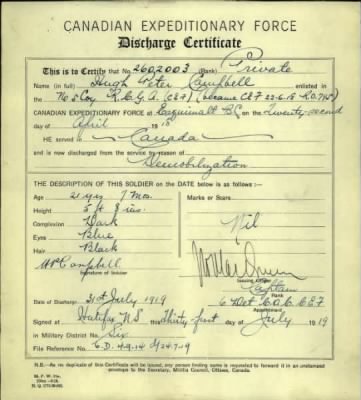 CANADIAN EXPEDITIONARY FORCE
Discharge Certificate
This is to Certify that No. 2602003 (Rank) Private
Name (in full) Hugh Peter Campbell enlisted in
the No 5 Coy R.C.G.A. (CEF) (became CEF 22-6-18
CANADIAN EXPEDITIONARY FORCE at Esquimalt BC on the Twenty-second
day of April 1918
HE served in Canada
and is now discharged from the service by reason of
Demobilization
THE DESCRIPTION OF THIS SOLDIER on the DATE below is as follows:—
Age 21 yrs 7 Mos. Marks or Scars
Height 5 ft 8 ins.
Complexion Dark Nil
Eyes Blue
Hair Black
HP Campbell
Signature of Soldier
Issuing Officer
Captain
Rank
Date of Discharge 31st July 1919 6 Dist C.G.A. CEF
Appointment
Signed at Halifax N.S. this thirty first day of July 1919
In Military District No. Six
File Reference No. 6.D. 4-9-14 24-7-19
N.B.—As no duplicate of this Certificate will be issued, any person finding same is requested to forward it in an unstamped
envelope to the Secretary, Militia Council, Ottawa, Canada.
M. F. W.
H.Q.